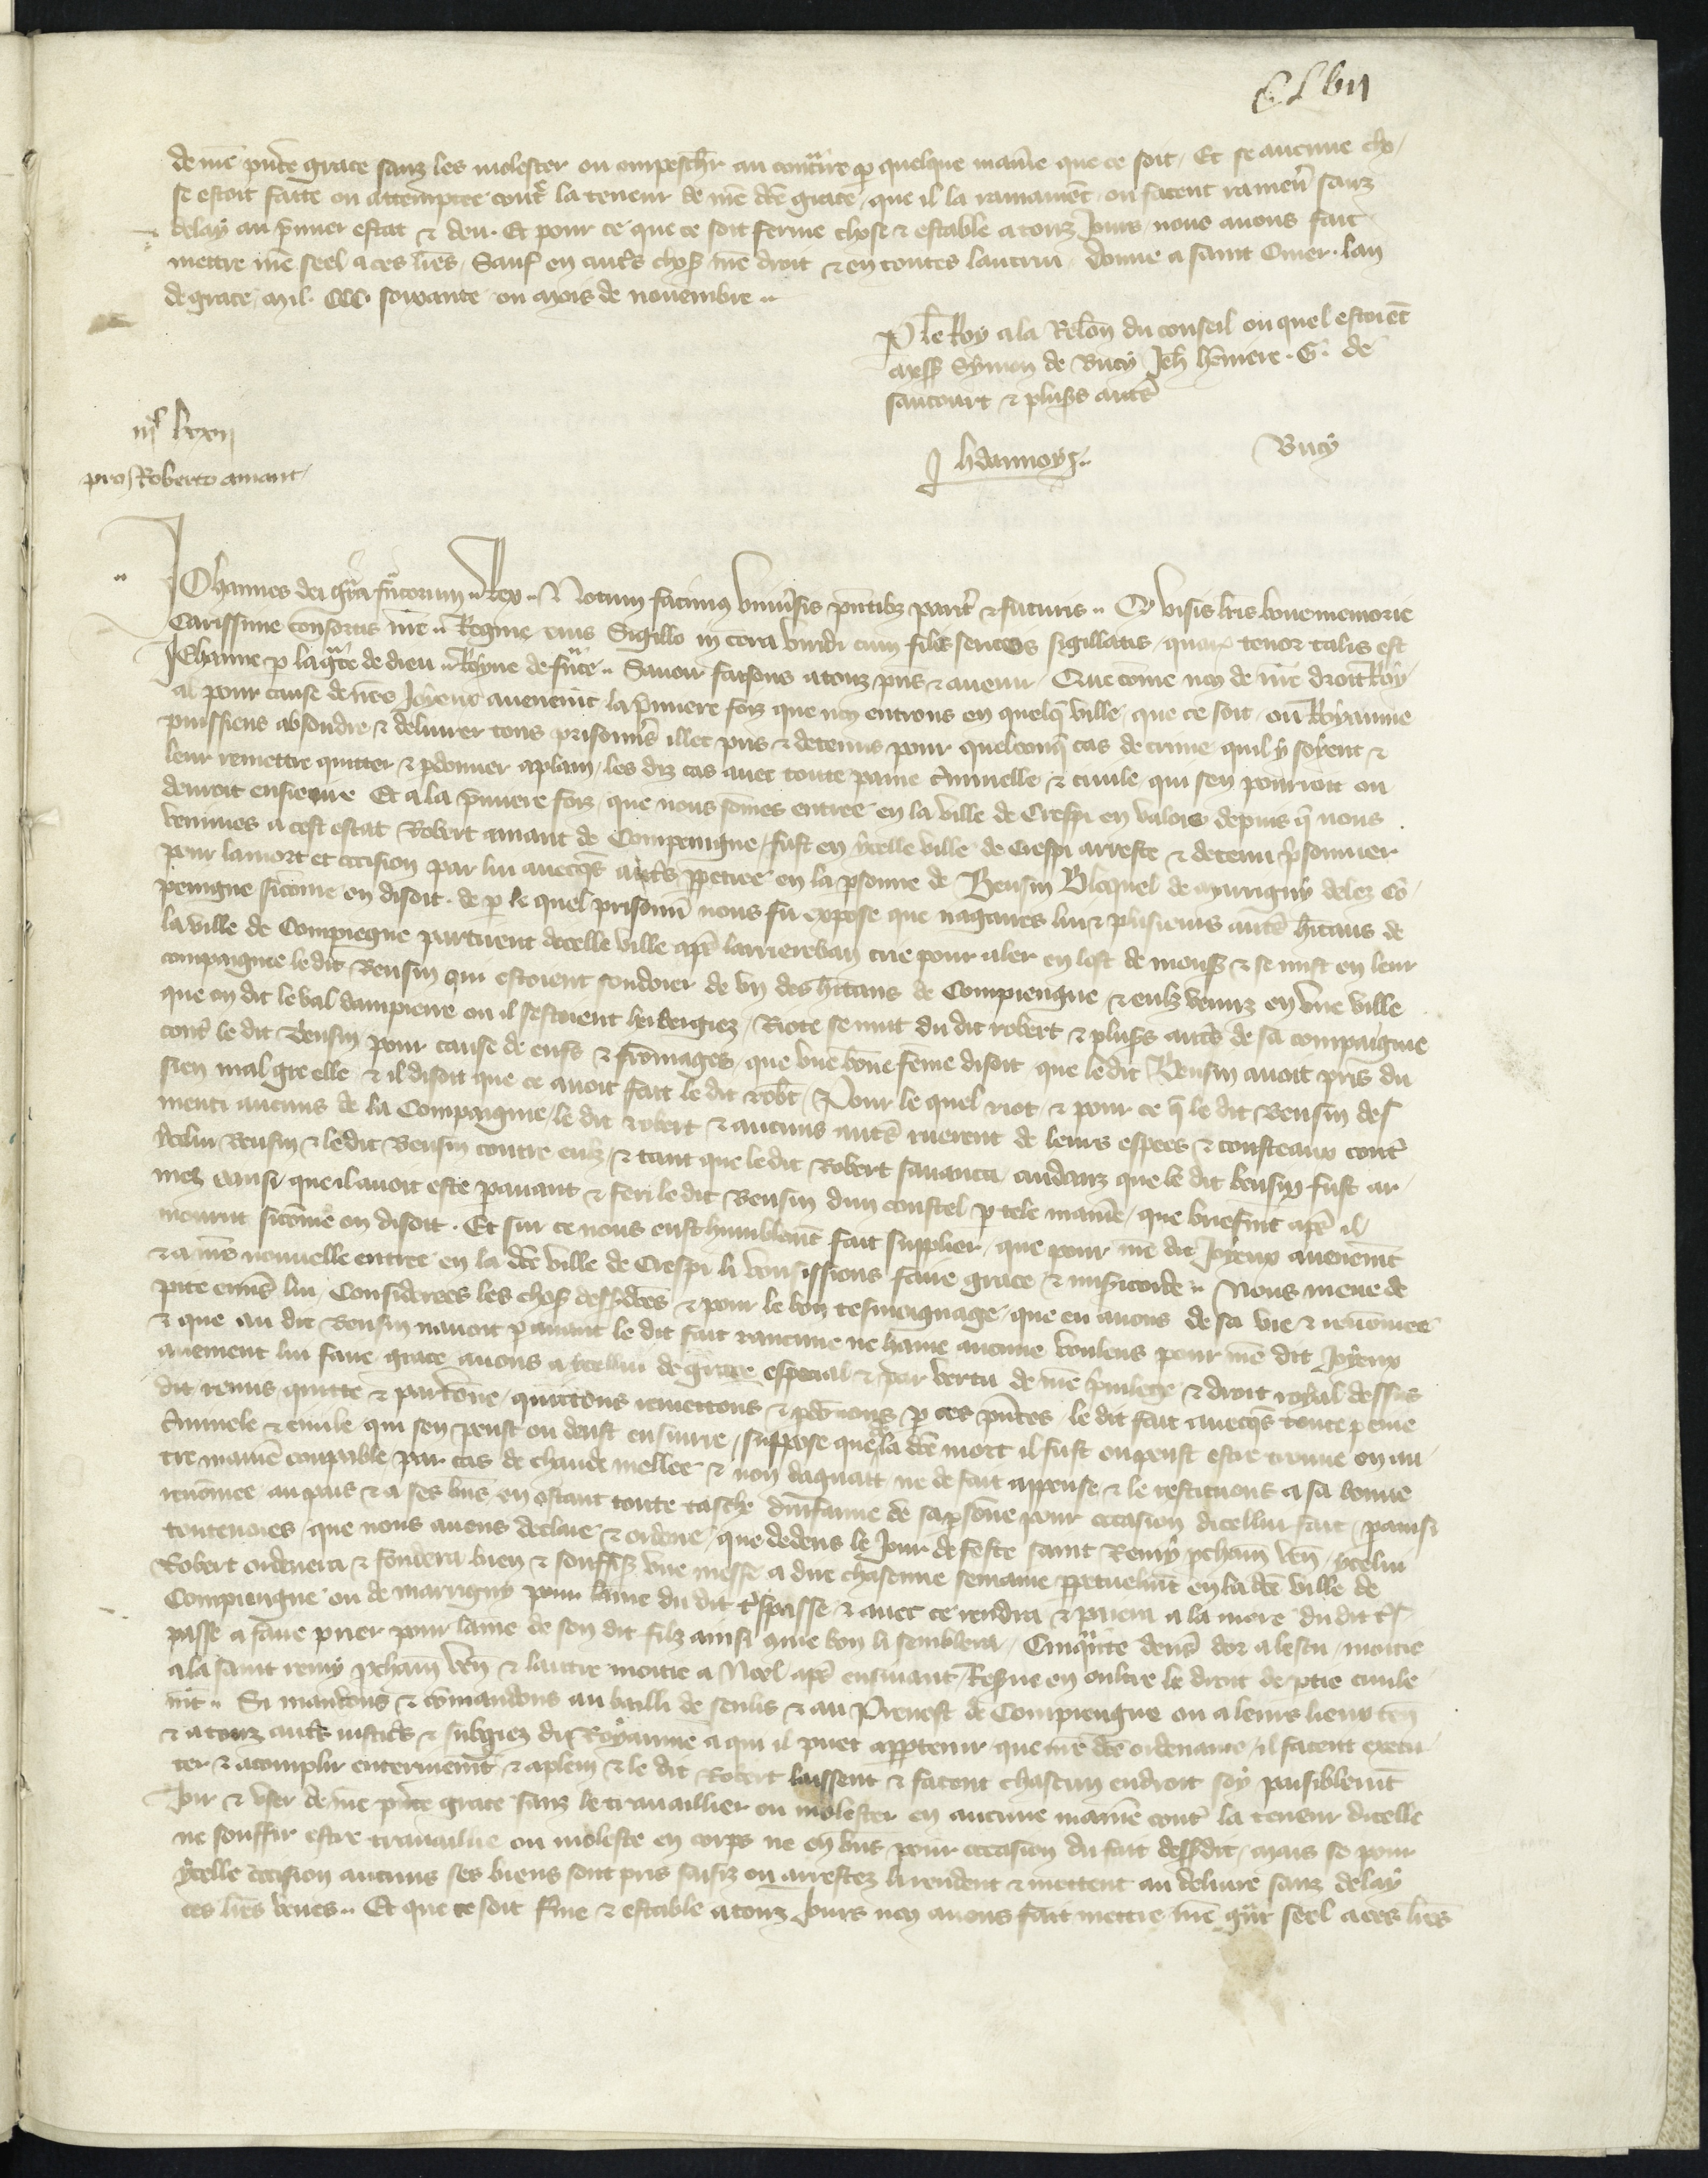 CLVII
de nre pnte grace sanz les molester ou empeschr au contraire p quelque manie que ce soit / Et se aucune cho /
se estoit faitte ou attemptee contr la teneur de nre dce grace / que il la ramainent ou facent ramenr sanz
delay au pmier estat & deu . Et pour ce que ce soit ferme chose & estable a touz Jours / nous auons fait
mettre nre seel a ces lres / Sauf en autres chos nre droit & en toutes lautrui / Donne a saint Omer . lan
de grace mil . CCC . soixante ou moys de nouembre ..
P le Roy a la Relon du conseil ou quel estoient
mess Symon de Bucy Jeh
saucourt & pluss autrs
J hdannoys .. Bucy
iiic lxxii
pro Roberto amant /
JOhannes dei gra francorum .. Rex .. Notum facimus vniusis pntibz parit & futuris .. Qd visis lris bone memorie
Carissime consortis nre .. Regine eius Sigillo in cera viridi cum filis sericeis sigillatis / quar tenor talis est
JEhanne p la grace de dieu .. Royne de france .. Sauoir faisons a touz pns & auenir / Que come no de nre droit Roy /
al pour cause de nres Joyeux auenemt / la pmiere foiz que no entrons en quelq ville / que ce soit / ou Royaume
puissiens absoudre & deliurer tous prisoniers illec pris & detenus pour quelconq cas de crime quil y soyent &
leur remettre quitter & pdonner a plain / les diz cas auec toute paine criminelle & ciuile qui sen pourroit ou
deuroit ensieuire Et a la pmiere foiz / que nous somes entree en la ville de Crespi en valois depuis q nous
venimes a cest estat Robert amant de Compiengne / fust en ycelle ville de Crespi arreste & detenu prisonnier
pour la mort et occision par lui auecqs autrs ppetree en la psonne de Bensin Blequel de marigny delez Co /
piengne sicome en disoit . de p le quel prisonn nous fu expose que nagaires lui & plusieurs autrs hitans de
la ville de Compiegne partirent dicelle ville apres larriereban crie pour aler en lost de mons & se mist en leur
compaignie le dit Bensin qui estoient soudoier de vn des hitans de Compiengne / & eulz venuz en vne ville
que en dit le val dampierre ou il sestoient herbergiez / Riote se mut du dit robert & pluss autrs de sa compaignie
contr le dit Bensin pour cause de eufs & fromages / que vne bone feme disoit que le dit Bensin auoit pris du
sien mal gre elle & il disoit que ce auoit fait le dit robt / Pour le quel riot / & pour ce q le dit Bensin des
menti aucuns de la Compaignie / le dit robert & aucuns autrs ruerent de leurs espees & cousteaux contr
ycelui Bensin & le dit Bensin contre eulz / & tant que le dit Robert sauanca / cuidanz que le dit bensin fust ar /
mez / ainsi que il auoit este pauant & feri le dit Bensin dun coustel p tele manie / que briefmt apres il
mourut sicome on disoit . Et sur ce nous eust humblemt fait supplier / que pour nre dit Joyeux auenemt
& a nre nouuelle entree en la dce ville de Crespi li vousissions faire grace & misicorde .. Nous meue de
pite enurs lui / Considerees les chos dessdces & pour le bon tesmoignage / que eu auons de sa vie & renomee
& que au dit Bensin nauoit pauant le dit fait rancune ne haine aucune voulens pour nre dit Joyeux
auenement lui faire grace auons a ycellui de grace especial & par vertu de nre priuilege & droit royal dessus
dit / remis quitte & pardone / quittons remettons & pdonons p ces pntes / le dit fait auecqs toute peine
criminele & ciuile qui sen peust ou deust ensuiure / suppose que de la dce mort il fust ou peust estre trouue en au /
tre manie coupable / par cas de chaude mellee & non daguait ne de fait appense & le restituons a sa bonne
renomee au pais & a ses bns en ostant toute tasche dinfame de sa psone pour occasion dicellui fait / p ainsi
toutenoies / que nous auons declaire & ordene / que dedens le jour de feste saint Remy pchain ven / ycelui
Robert ordenera & fondera bien & souffis vne messe a dire chascune semaine ppetuelmt en la dce ville de
Compiengne ou de marrigny pour lame du dit trspasse & auec ce rendra & paiera a la mere du dit trs /
passe a faire prier pour lame de son dit filz ainsi que bon li semblera / Cinquante deners dor a lescu / moitie
a la saint remy pchain ven & lautre moitie a Noel apres ensuiuant / Resrue en oultre le droit de ptie ciuile
mt .. Si mandons & comandons au bailli de senlis & au Preuost de Compiengne ou a leurs lieux ten
& a touz autrs iustics & subgiez du Royaume a qui il puet appartenir / que nre dce ordenance / il facent execu
ter & acomplir enterinemt & a plein & le dit Robert laissent & facent chascun endroit soy paisiblemt
Joir & vser de nre pnte grace sanz le trauaillier ou molester en aucune manie contr la teneur dicelle
ne souffrir estre trauaillie ou moleste en corps ne en bns pour occasion du fait dessdit / mais se pour
ycelle occision aucuns ses biens sont pris saisiz ou arrestez li rendent & mettent au deliure sanz delay
ces lres veues .. Et que ce soit fme & estable a touz Jours no auons fait mettre nre gnt seel a ces lres